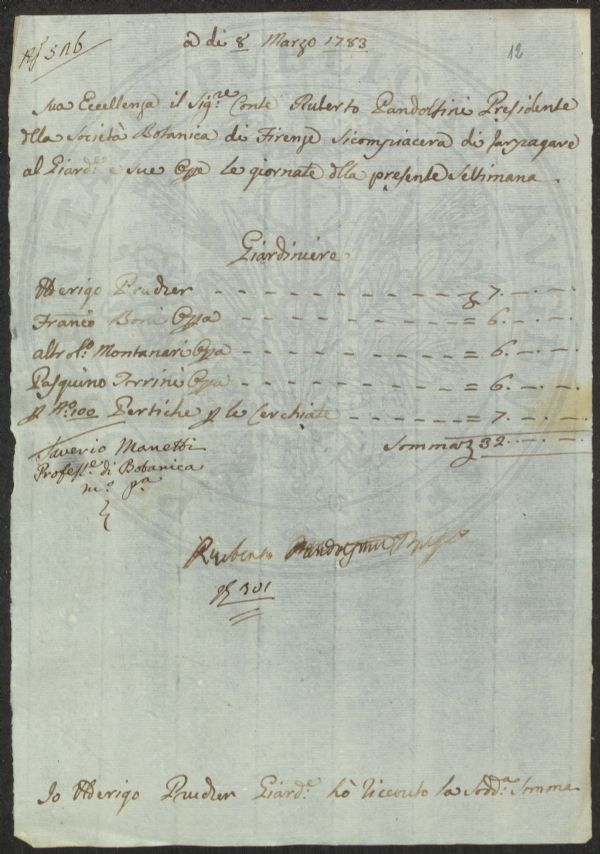 a di 8 Marzo 1783
12
Sua Eccellenza il Sig.re Conte Ruberto Pandolfini Presidente
della Società Botanica di Firenze si compiacerà di far pagare
al Giard.e e sue Opre le giornate della presente Settimana
Giardiniere
Aderigo Prucker - - - - - - - - - 7. - . - .
Franco Boni Opra - - - - - - - = 6. - . - .
altro d.o Montanari Opra - - - - - - = 6. - . - .
Pasquino Ferrini Opra - - - - - - = 6. - . - .
p n.o 100 Pertiche p le Cerchiate - - - - - = 7. - . - .
Somma 32. - . - .
Saverio Manetti
Profess.e di Botanica
m.o p.a
Ruberto Pandolfini
301
Io Aderigo Prucker Giard.e hò ricevuto la Sodd.a Somma